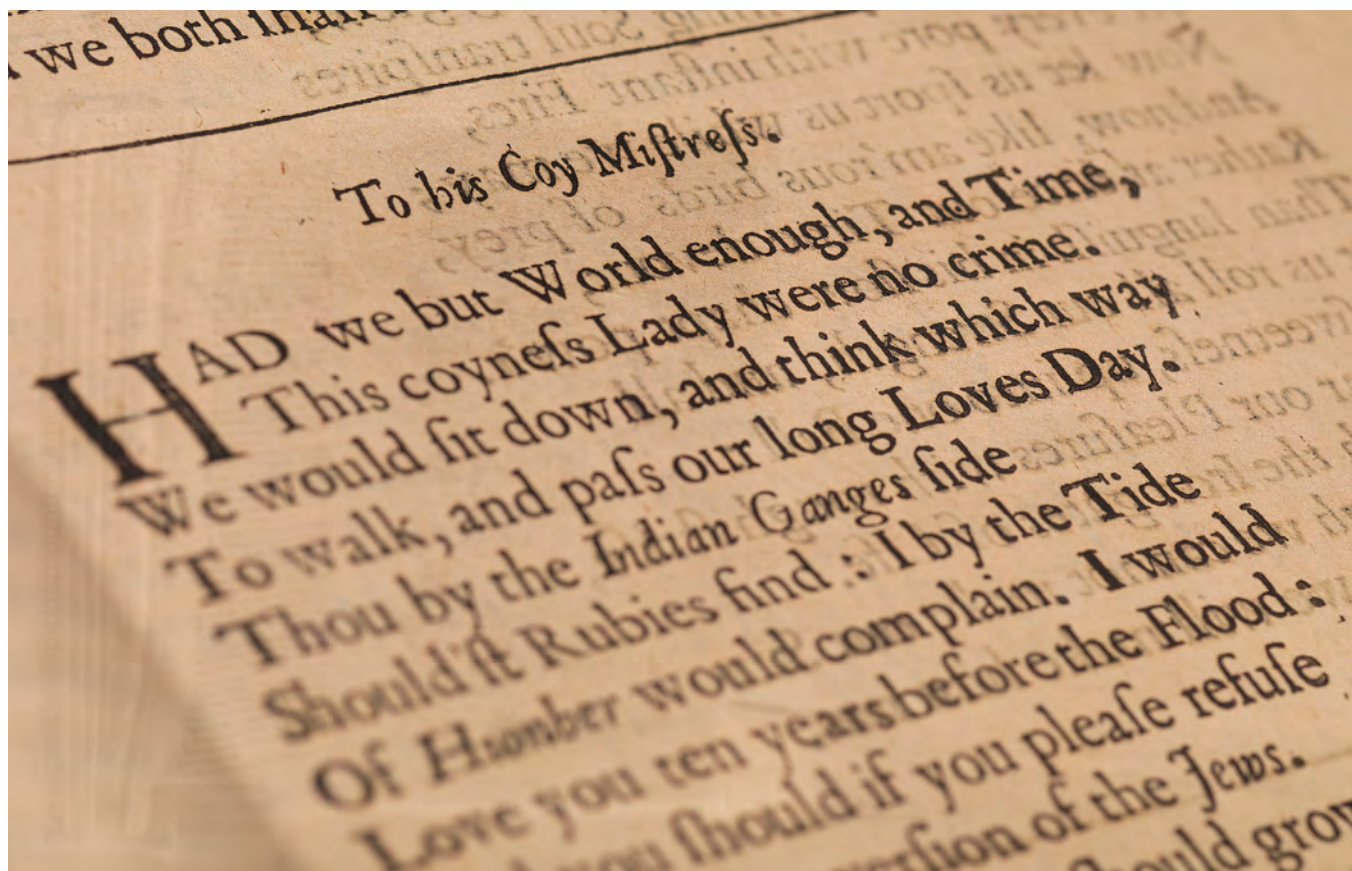 we both than
To his Coy Miſtreſs.
HAD we but World enough, and Time,
This coyneſs Lady were no crime.
We would ſit down, and think which way
To walk, and paſs our long Loves Day.
Thou by the Indian Ganges ſide
Should'ſt Rubies find : I by the Tide
Of Humber would complain. I would
Love you ten years before the Flood :
you ſhould if you pleaſe refuſe
of the Jews.
ſhould grow